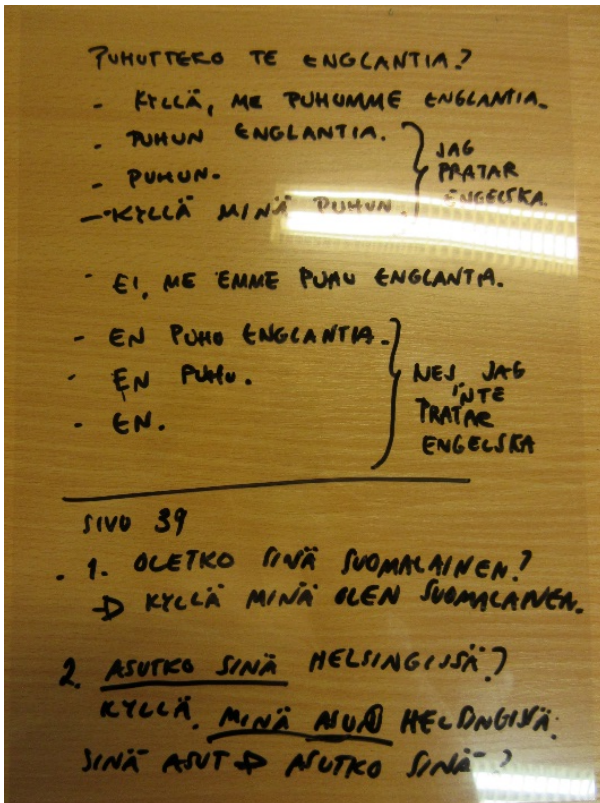 PUHUTTEKO TE ENGLANTIA?
- KYLLÄ, ME PUHUMME ENGLANTIA.
- PUHUN ENGLANTIA.
- PUHUN.
- KYLLÄ MINÄ PUHUN.
JAG
PRATAR
ENGELSKA
- EI, ME EMME PUHU ENGLANTIA.
- EN PUHU ENGLANTIA.
- EN PUHU.
- EN.
NEJ JAG
INTE
PRATAR
ENGELSKA
SIVU 39
1. OLETKO SINÄ SUOMALAINEN?
→ KYLLÄ MINÄ OLEN SUOMALAINEN.
2. ASUTKO SINÄ HELSINGISSÄ?
KYLLÄ. MINÄ ASUN HELSINGISSÄ.
SINÄ ASUT → ASUTKO SINÄ?